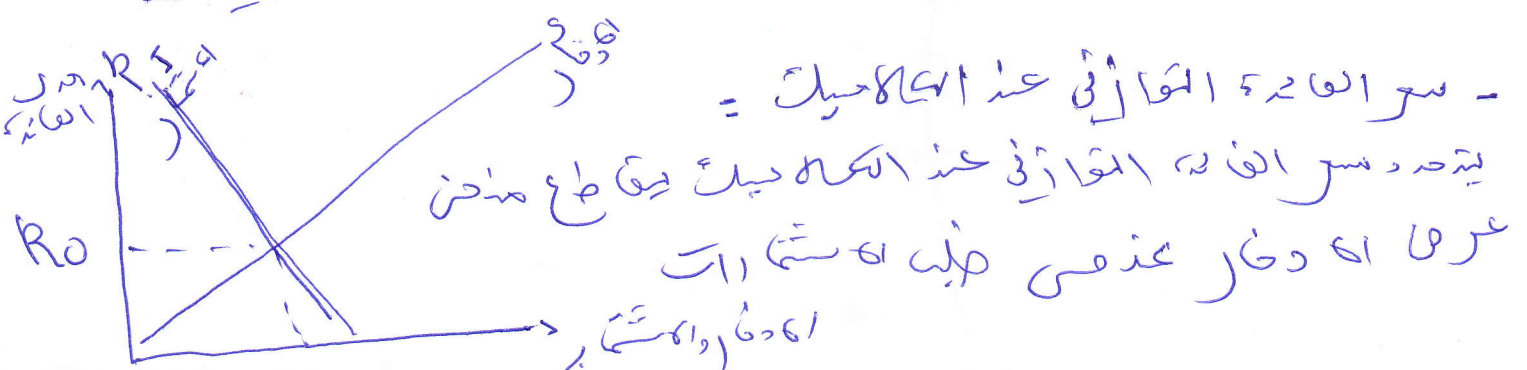 - سعر الفائدة التوازني عند الكلاسيك =
يتحدد سعر الفائدة التوازني عند الكلاسيك بتقاطع منحنى
عرض الادخار بمنحنى طلب الاستثمارات
R
S
I
سعر
الفائدة
R0
الادخار والاستثمار